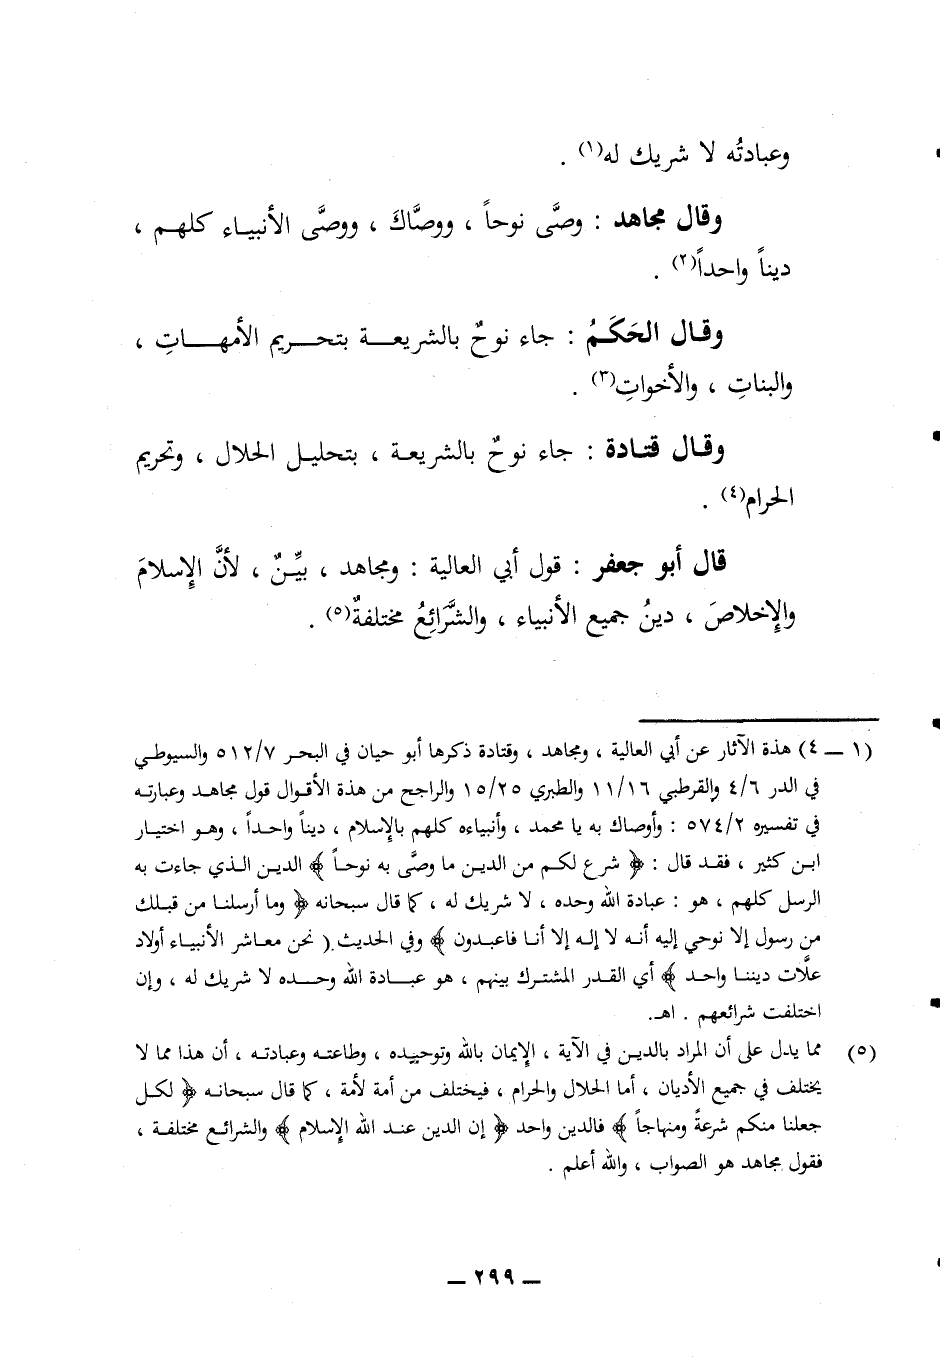 وعبادتُه لا شريك له(١) .
وقال مجاهد : وصَّى نوحاً ، ووصَّاكَ ، ووصَّى الأنبياء كلهم ،
ديناً واحداً(٢) .
وقال الحَكَمُ : جاء نوحٌ بالشريعة بتحريم الأمهاتِ ،
والبناتِ ، والأخواتِ(٣) .
وقال قتادة : جاء نوحٌ بالشريعة ، بتحليل الحلال ، وتحريم
الحرام(٤) .
قال أبو جعفر : قول أبي العالية : ومجاهد ، بيِّنٌ ، لأنَّ الإِسلامَ
والإِخلاصَ ، دينُ جميع الأنبياء ، والشَّرائِعُ مختلفةٌ(٥) .
(١ ــ ٤) هذة الآثار عن أبي العالية ، ومجاهد ، وقتادة ذكرها أبو حيان في البحر ٥١٢/٧ والسيوطي
في الدر ٤/٦ والقرطبي ١١/١٦ والطبري ١٥/٢٥ والراجح من هذة الأقوال قول مجاهد وعبارته
في تفسيره ٥٧٤/٢ : وأوصاك به يا محمد ، وأنبياءه كلهم بالإسلام ، ديناً واحداً ، وهو اختيار
ابن كثير ، فقد قال : ﴿ شرع لكم من الدين ما وصَّى به نوحاً ﴾ الدين الذي جاءت به
الرسل كلهم ، هو : عبادة الله وحده ، لا شريك له ، كما قال سبحانه ﴿ وما أرسلنا من قبلك
من رسول إلا نوحي إليه أنه لا إله إلا أنا فاعبدون ﴾ وفي الحديث ( نحن معاشر الأنبياء أولاد
علَّات ديننا واحد ﴾ أي القدر المشترك بينهم ، هو عبادة الله وحده لا شريك له ، وإن
اختلفت شرائعهم . اهـ.
(٥) مما يدل على أن المراد بالدين في الآية ، الإيمان بالله وتوحيده ، وطاعته وعبادته ، أن هذا مما لا
يختلف في جميع الأديان ، أما الحلال والحرام ، فيختلف من أمة لأمة ، كما قال سبحانه ﴿ لكل
جعلنا منكم شرعةً ومنهاجاً ﴾ فالدين واحد ﴿ إن الدين عند الله الإسلام ﴾ والشرائع مختلفة ،
فقول مجاهد هو الصواب ، والله أعلم .
ــ ٢٩٩ ــ